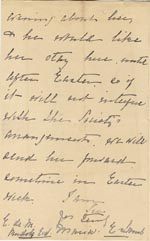 coming about her,
& he would like
her stay here until
after Easter, so if
it will not interfere
with the Society's
arrangements, we will
send her forward
sometime in Easter
week. I am
E. de M.